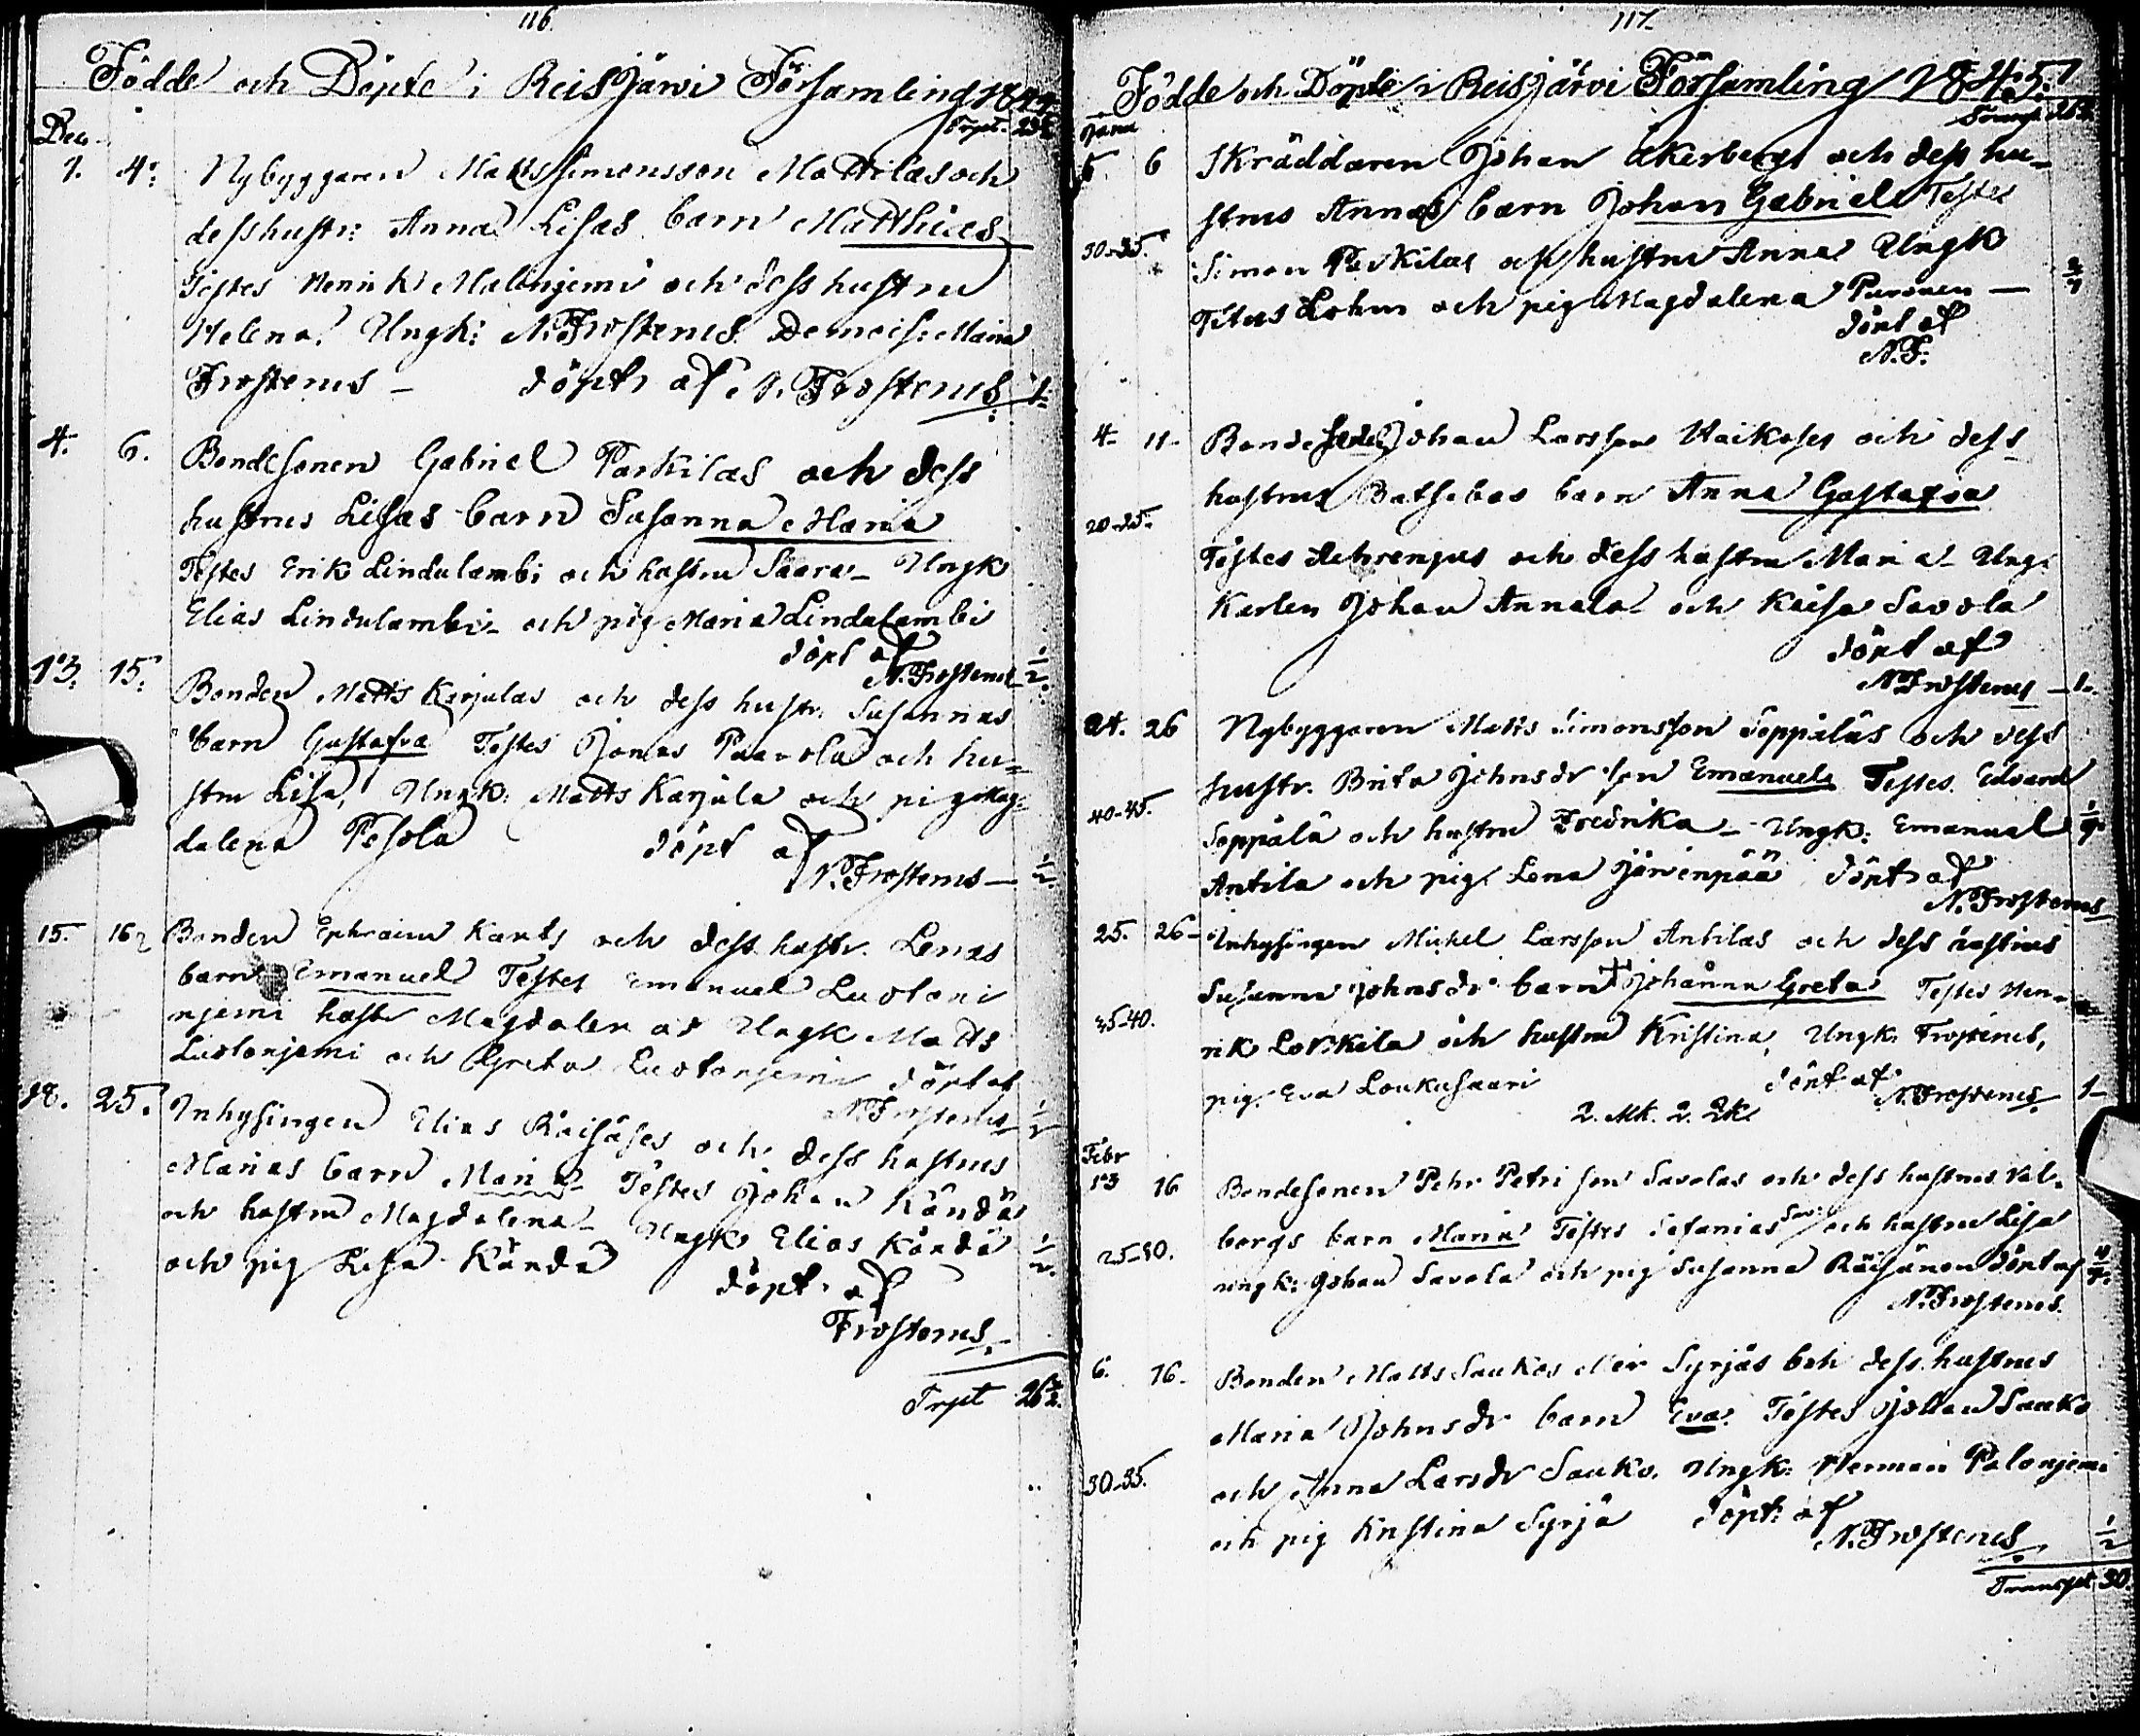 116.
Födde och Döpte i Reisjärvi Församling 1844
Trspt. 23½
Dec.
1. 4. Nybyggaren Matts Simonsson Mattilas och
dess hustr: Anna Lisas barn Matthias
Testes Henrik Malonjemi och dess hustru
Helena. Ungk: N. Frosterus. Demois: Maria
Frosterus – döpt af N. Frosterus 1.
4. 6. Bondesonen Gabriel Parkilas och dess
hustrus Lisas barn Susanna Maria
Testes Erik Lindulambi och hustru Saara – Ungk
Elias Lindulambi – och pig Maria Lindulambi
döpt af
N. Frosterus ½.
13. 15. Bonden Matts Karjulas och dess hustr. Susannas
barn Gustafva Testes Jonas Paavola och hu=
stru Lisa, Ungk. Matts Karjula och pig Mag=
dalena Pesola döpt af
N. Frosterus – ½
15. 16 Bonden Ephraim Kants och dess hustr. Lenas
barn Emanuel Testes Emanuel Luotoni
njemi hustr Magdalena Ungk Matts
Luotonjemi och Greta Luotonjemi döpt af
N. Frosterus ½
18. 25. Inhysingen Elias Räisäses och dess hustrus
Marias barn Maria – Testes Johan Kändä
och hustru Magdalena – Ungk Elias Kändä
och pig Lisa Kändä ½.
döpt af
Frosterus.
Trpt 26½.
117.
Födde och Döpte i Reisjärvi Församling 1845.
Transpt 26½
Janu
5 6 Skräddaren Johan Åkerbergs och dess hu–
strus Annas barn Johan Gabriel Testes
30–35. Simon Parkilas och hustru Anna Ungk
Titus Lohm och pig Magdalena Puronen —
döpt af
N. F.
4. 11. Bonde Johan Larsson Haikoses och dess
hustrus Bathebas barn Anna Gustafva
20–25.
Testes och dess hustru Maria – Ung.
Karlen Johan Annala och Kaisa Savola
döpt af
N Frosterus – 1.
24. 26 Nybyggaren Matts Simonsson Seppäläs och dess
hustr. Brita Johnsdr son Emanuel Testes. Edvard
40–45. Seppälä och hustru Fredrika – Ungk: Emanuel
Antila och pig. Lena Järvenpää döpt af
N. Frosterus
25. 26 – Inhysingen Michel Larsson Antilas och dess hustrus
Susanna Johnsdr barn + Johanna Greta Testes Hen=
35–40. rik Loskila och hustru Kristina, Ungk. Frosterus,
pig. Eva Loukusaari döpt af N. Frosterus 1–
2. Mk. 2. 2k.
Febr
13 16 Bondesonen Pehr Petri son Savolas och dess hustrus Val.
borgs barn Maria Testes Sefanias Sav: och hustru Lisa
25–30. ungk: Johan Savola och pig Susanna Räisänen döpt af
N. Frosterus.
6. 16. Bonden Matts Saukos eller Syrjäs och dess hustrus
Maria Johnsdr barn Eva. Testes Johan Sauko
30–35. och Anna Larsdr Sauko. Ungk. Herman Palonjemi
och pig Kristina Syrjä döpt af
N. Frosterus ½
Transpt 30.